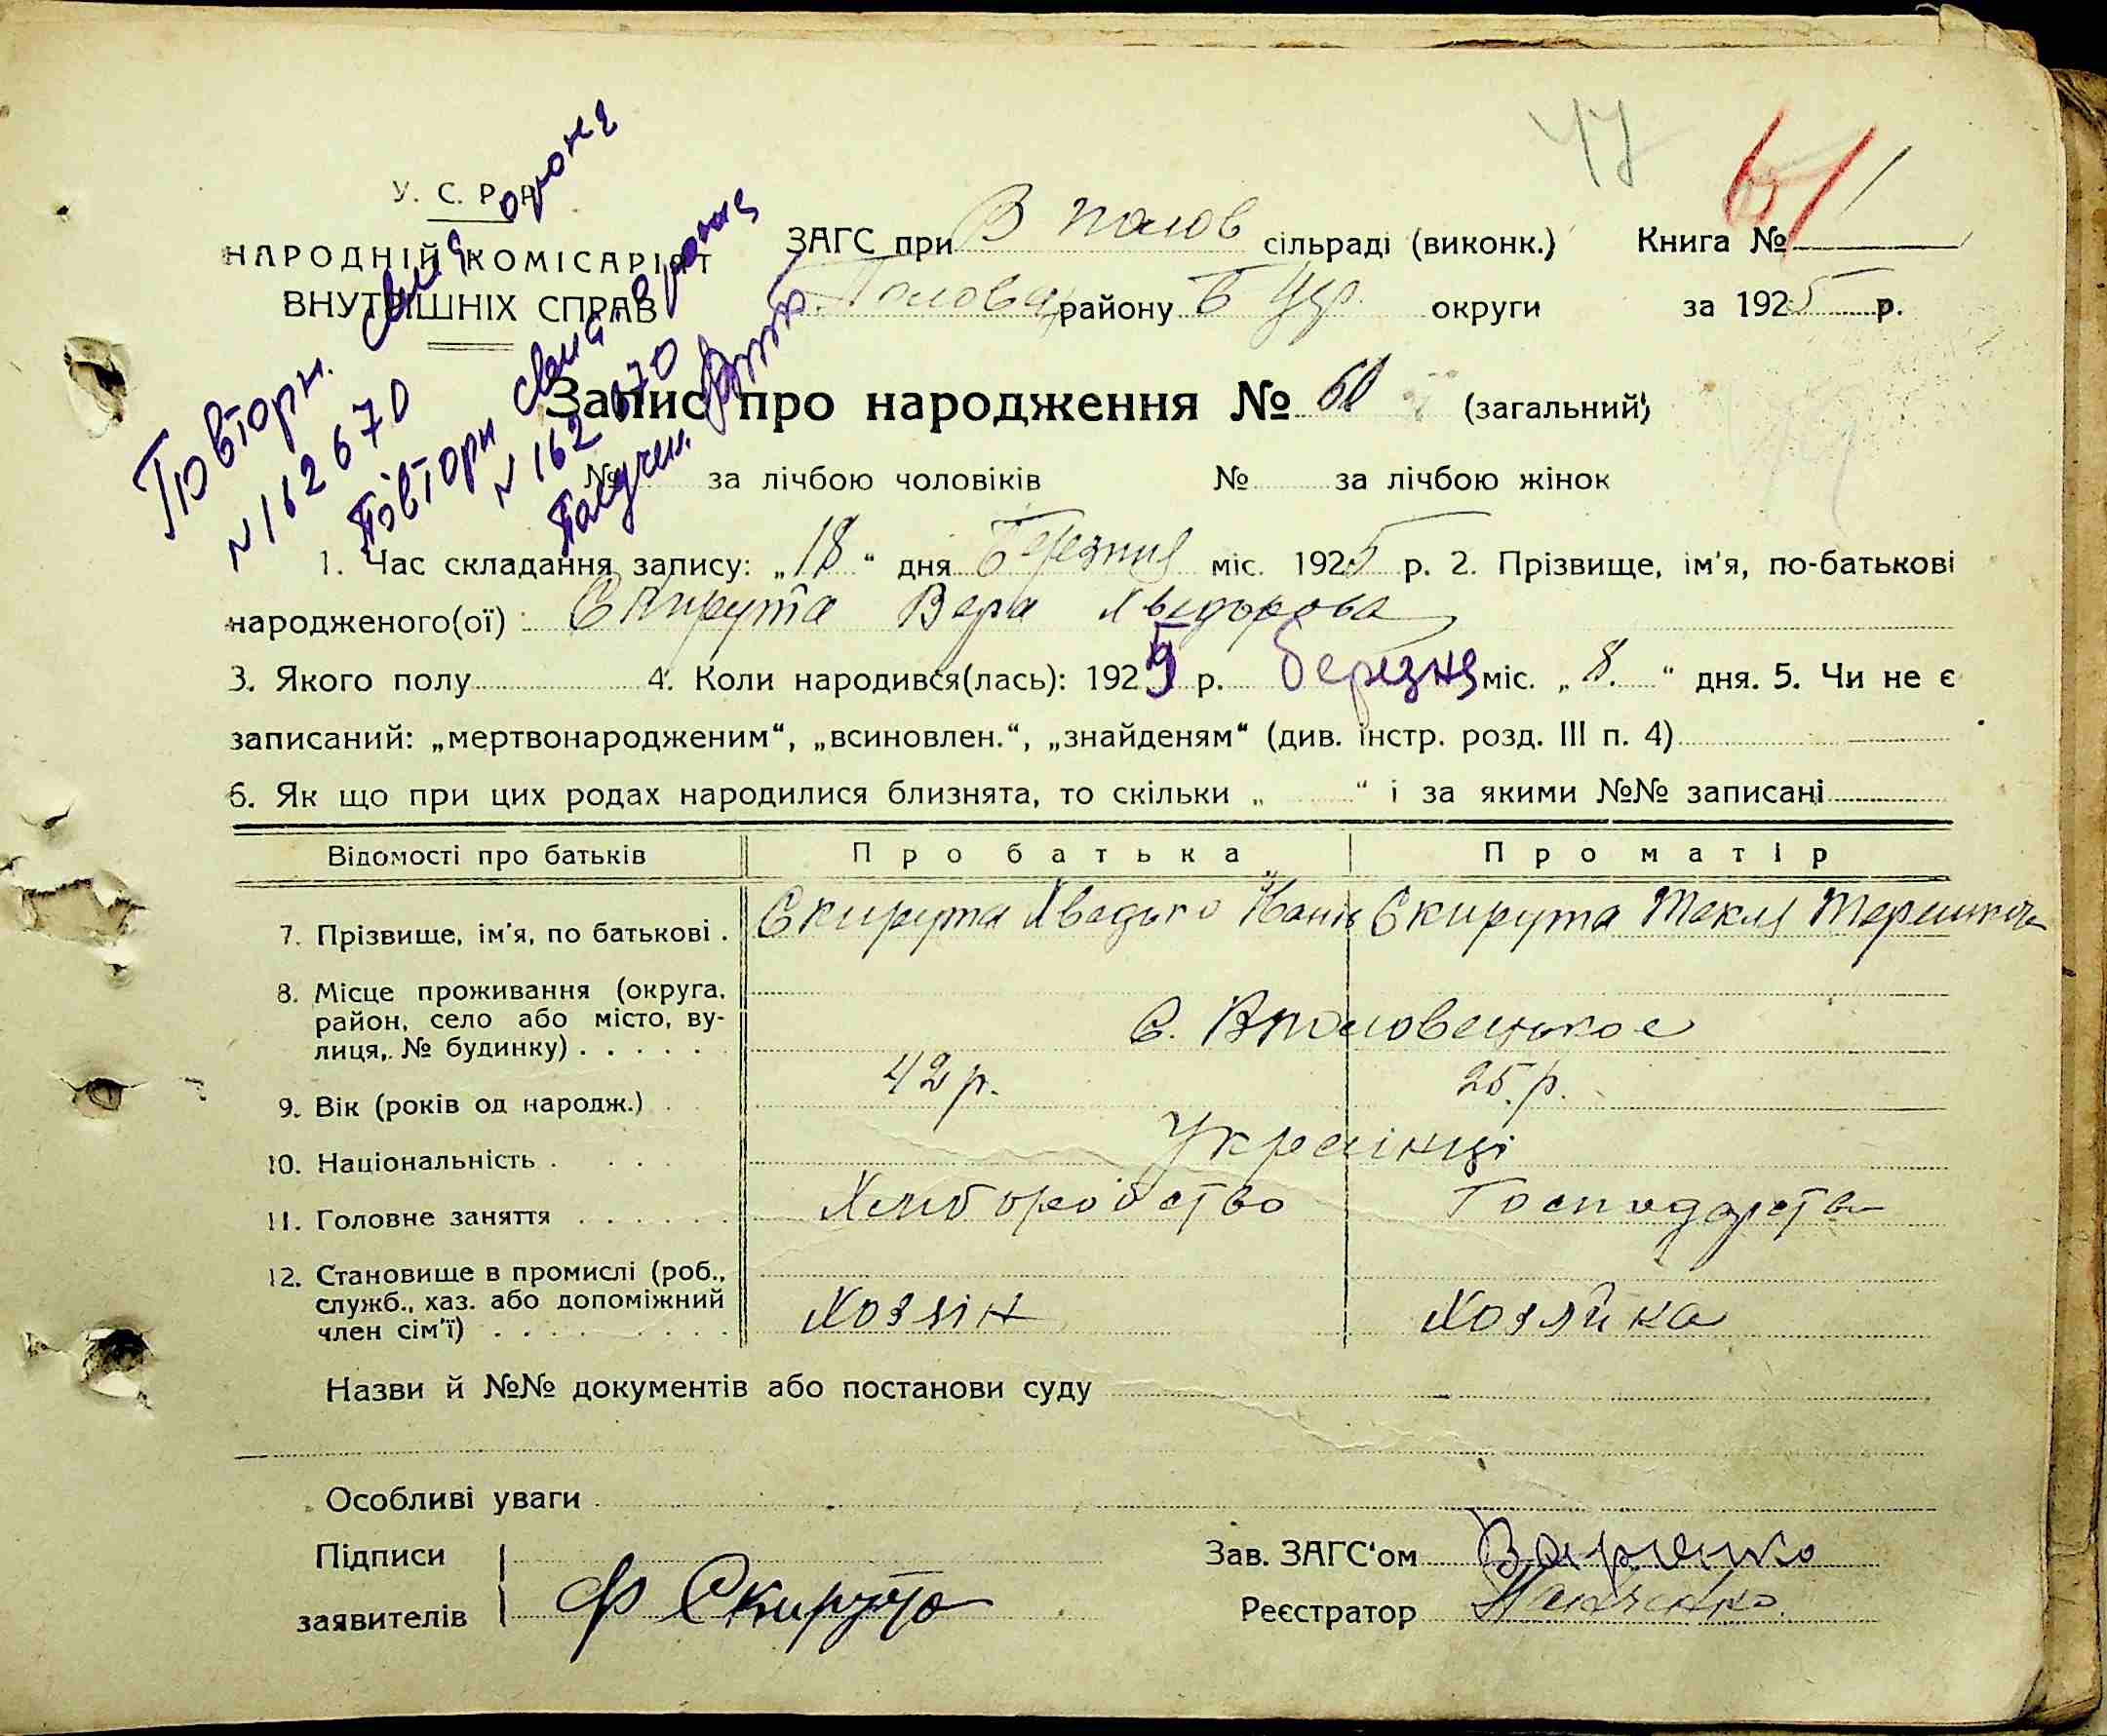 47
У. С. Р. Р.
НАРОДНІЙ КОМІСАРІЯТ
ВНУТРІШНІХ СПРАВ
ЗАГС при В Полов сільраді (виконк.) Книга №
Полова району Б Цер. округи за 1925 р.
Повторн.
N 162670
Повторн
N 162670
Запис про народження № 60 (загальний)
№ за лічбою чоловіків № за лічбою жінок
1. Час складання запису: „18“ дня Березня міс. 1925 р. 2. Прізвище, ім'я, по-батькові
народженого(ої) Скирута Вера Хведорова
3. Якого полу 4. Коли народився(лась): 1925 р. березня міс. „8.“ дня. 5. Чи не є
записаний: „мертвонародженим“, „всиновлен.“, „знайденям“ (див. інстр. розд. III п. 4)
6. Як що при цих родах народилися близнята, то скільки „ “ і за якими №№ записані
Відомості про батьків Про батька Про матір
7. Прізвище, ім'я, по батькові . Скирута Хведько Іванів Скирута Текля
8. Місце проживання (округа,
район, село або місто, ву-
лиця, № будинку) . . . . . С. Вполовецькое
9. Вік (років од народж.) . 42 р. 25. р.
10. Національність . . . . Українці
11. Головне заняття . . . . . . Хлиборобство Господарство
12. Становище в промислі (роб.,
служб., хаз. або допоміжний
член сім'ї) . . . . . . . . Хозяін Хозяйка
Назви й №№ документів або постанови суду
Особливі уваги
Підписи
заявителів Ф Скирута
Зав. ЗАГС'ом
Реєстратор